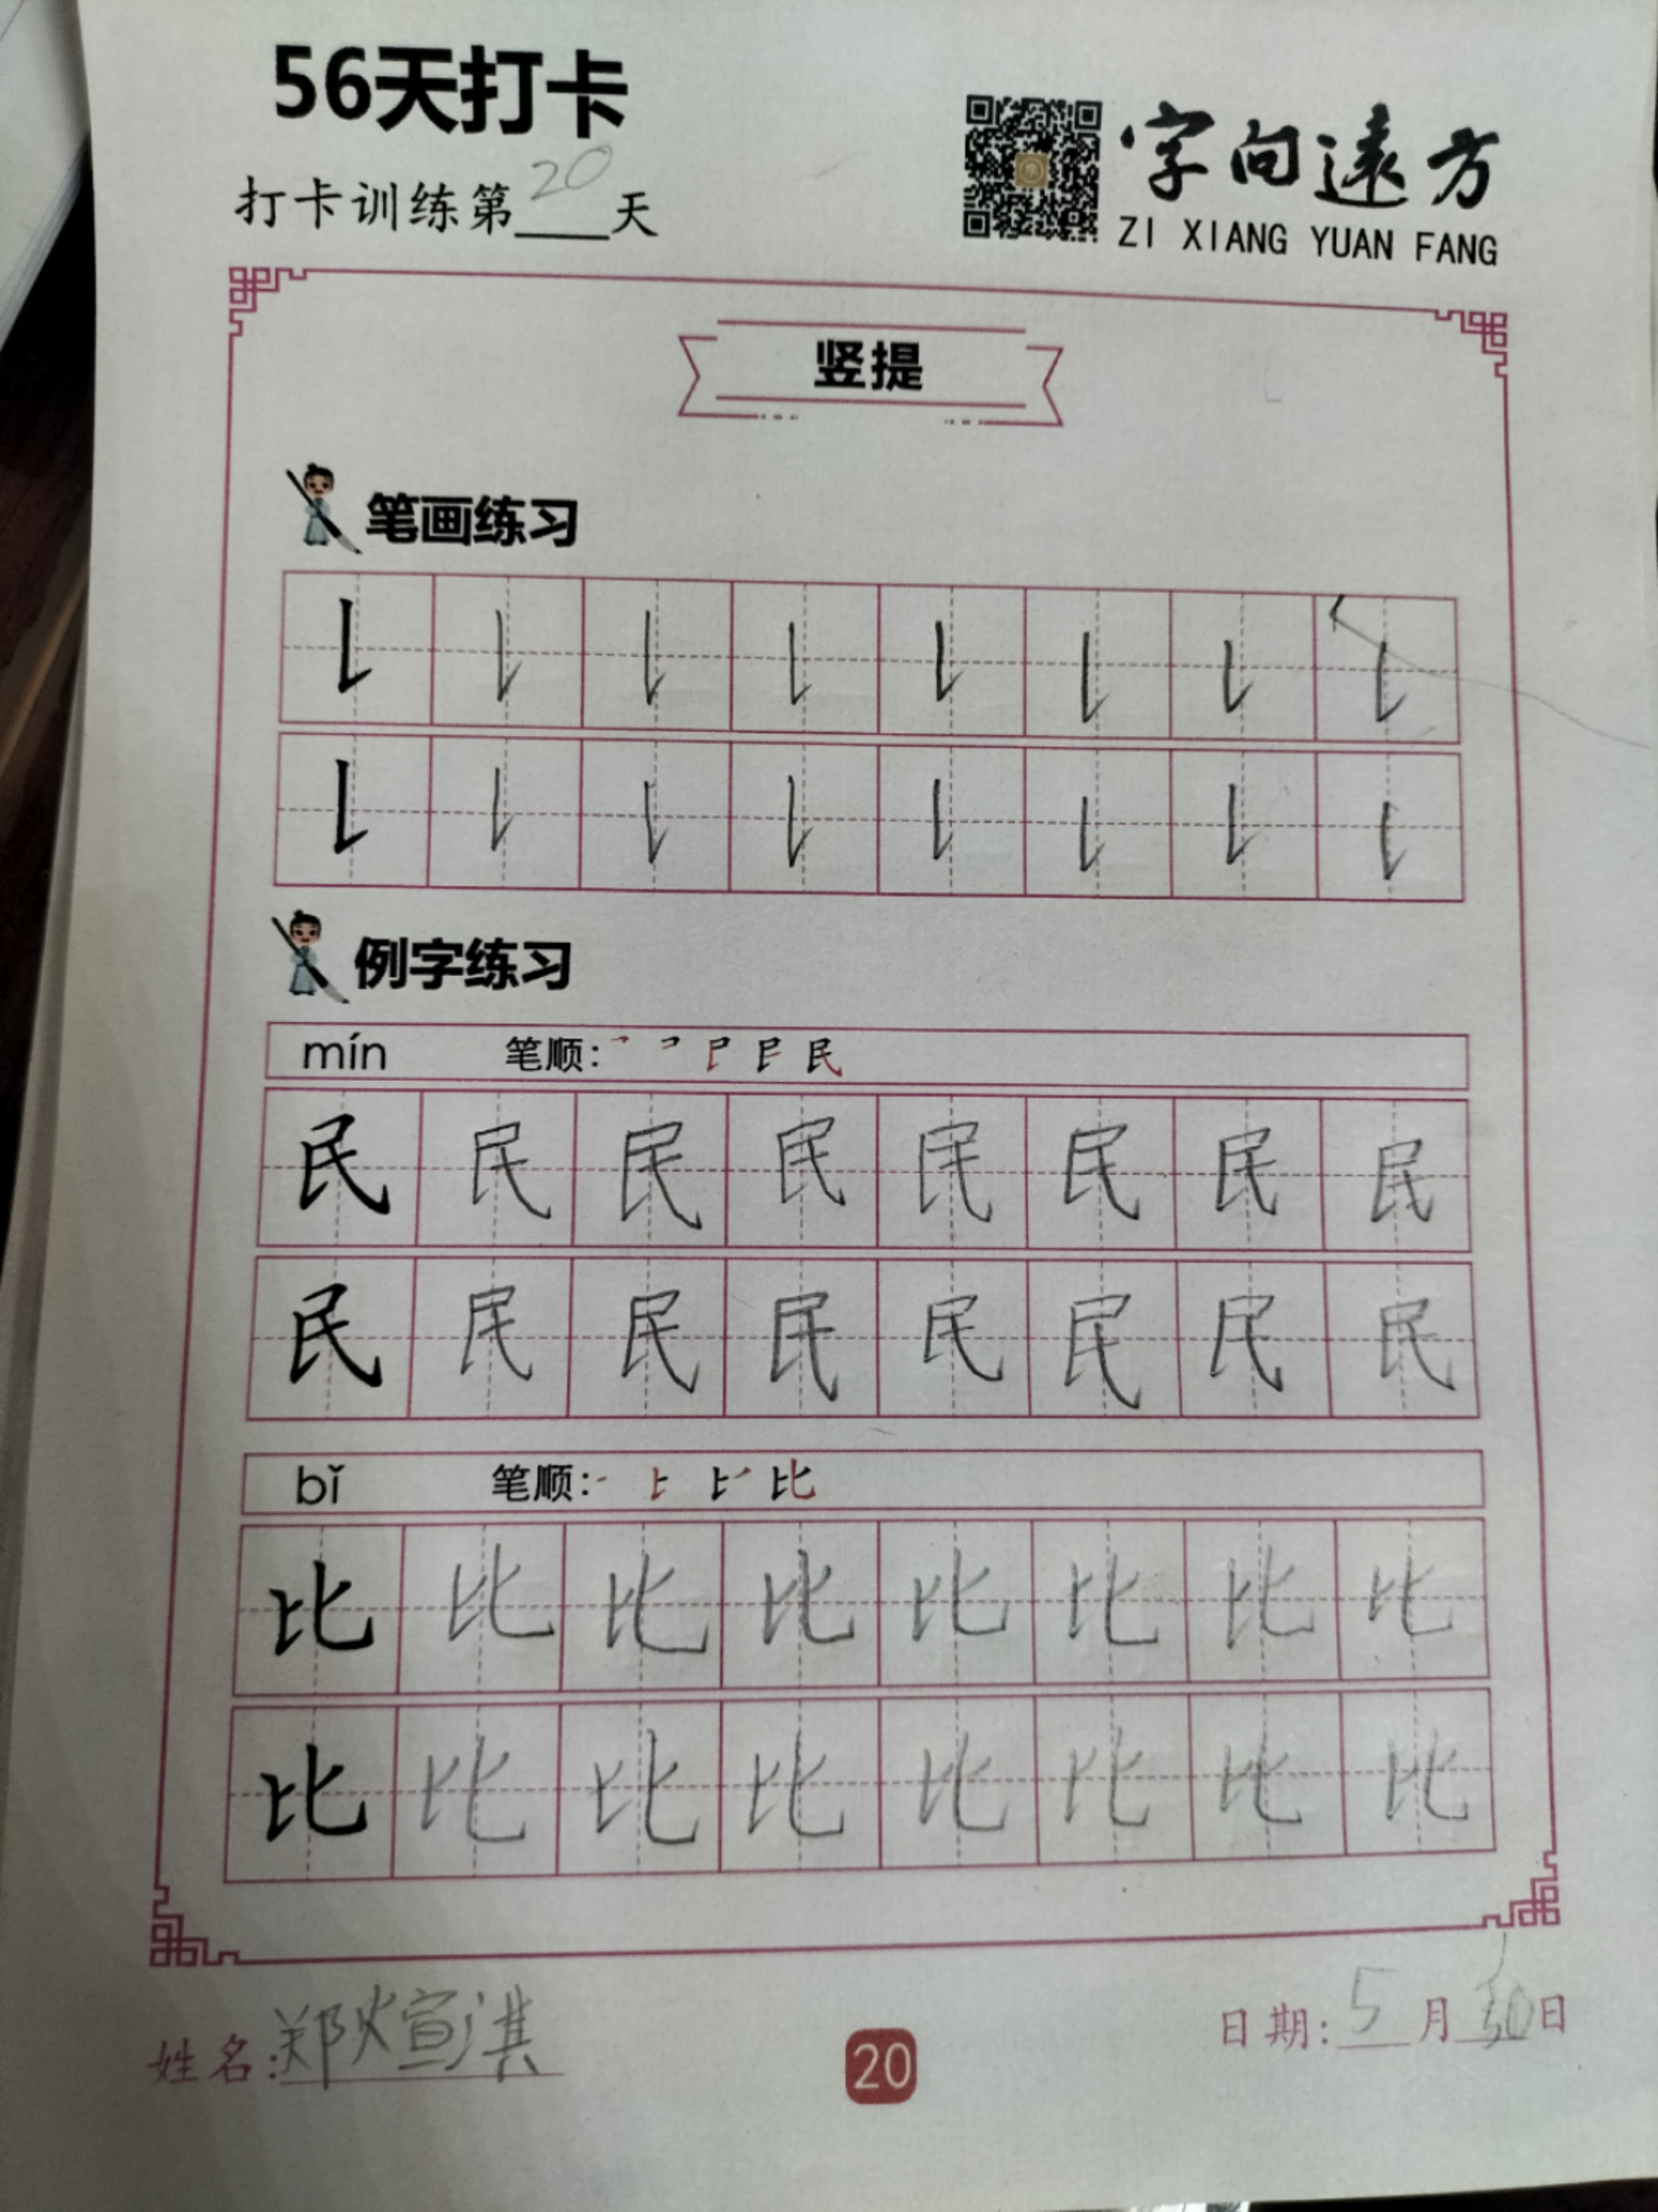 56天打卡
打卡训练第20天
字向遠方
ZI XIANG YUAN FANG
竖提
笔画练习
例字练习
mín 笔顺:
民 民 民 民 民 民 民 民
民 民 民 民 民 民 民 民
bǐ 笔顺:
比 比 比 比 比 比 比 比
比 比 比 比 比 比 比 比
姓名:郑煊淇
20
日期:5月30日